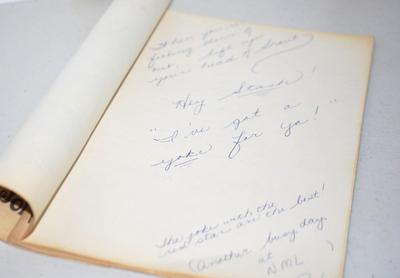 When you're
feeling down &
out, lift up
your head & shout
Hey Stash!
"I've got a
yoke for ya!"
The joke with the
red star are the best!
(Another busy day
at
NML )